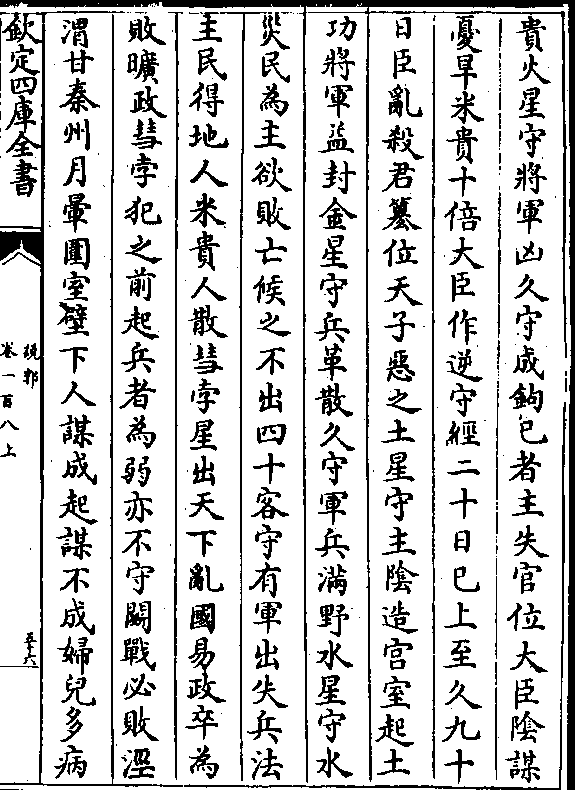 貴火星守將軍凶久守成鉤巳者主失官位大臣陰謀
憂旱米貴十倍大臣作逆守經二十日巳上至久九十
日臣亂殺君簒位天子惡之土星守主陰造宫室起土
功將軍益封金星守兵革散久守軍兵滿野水星守水
災民為主欲敗亡候之不出四十客守有軍出失兵法
主民得地人米貴人散彗孛星出天下亂國易政卒為
敗曠政彗孛犯之前起兵者為弱亦不守鬬戰必敗涇
渭甘秦州月暈圍室壁下人謀成起謀不成婦兒多病
欽定四庫全書
說郛
卷一百八上
五十六